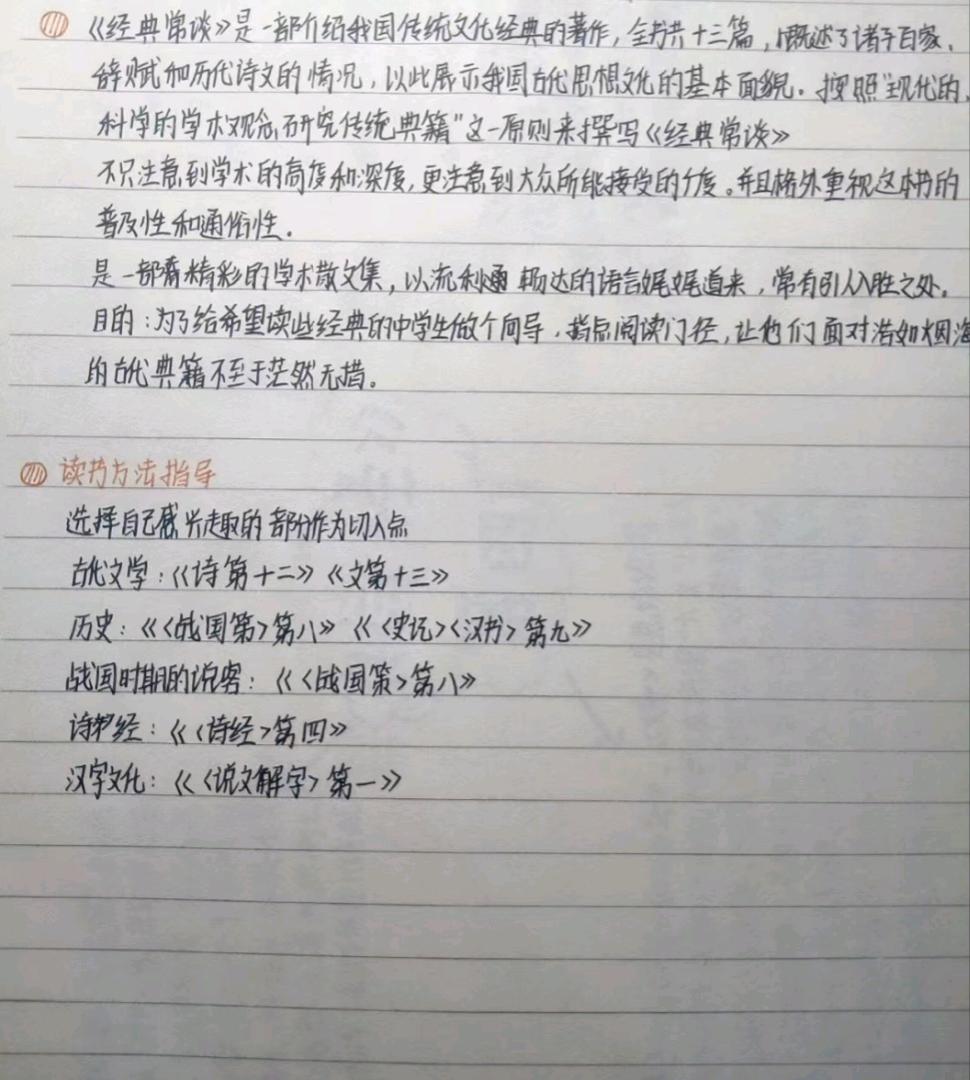 《经典常谈》是一部介绍我国传统文化经典的著作,全书共十三篇,概述了诸子百家、
辞赋和历代诗文的情况,以此展示我国古代思想文化的基本面貌。按照"现代的、
科学的学术观念研究传统典籍"这一原则来撰写《经典常谈》
不只注意到学术的高度和深度,更注意到大众所能接受的广度。并且格外重视这本书的
普及性和通俗性.
是一部精彩的学术散文集,以流利畅达的语言娓娓道来,常有引人入胜之处。
目的:为了给希望读些经典的中学生做个向导,指点阅读门径,让他们面对浩如烟海
的古代典籍不至于茫然无措。
读书方法指导
选择自己感兴趣的部分作为切入点
古代文学:《诗第十二》《文第十三》
历史:《〈战国策〉第八》《〈史记〉〈汉书〉第九》
战国时期的说客:《〈战国策〉第八》
诗经:《〈诗经〉第四》
汉字文化:《〈说文解字〉第一》